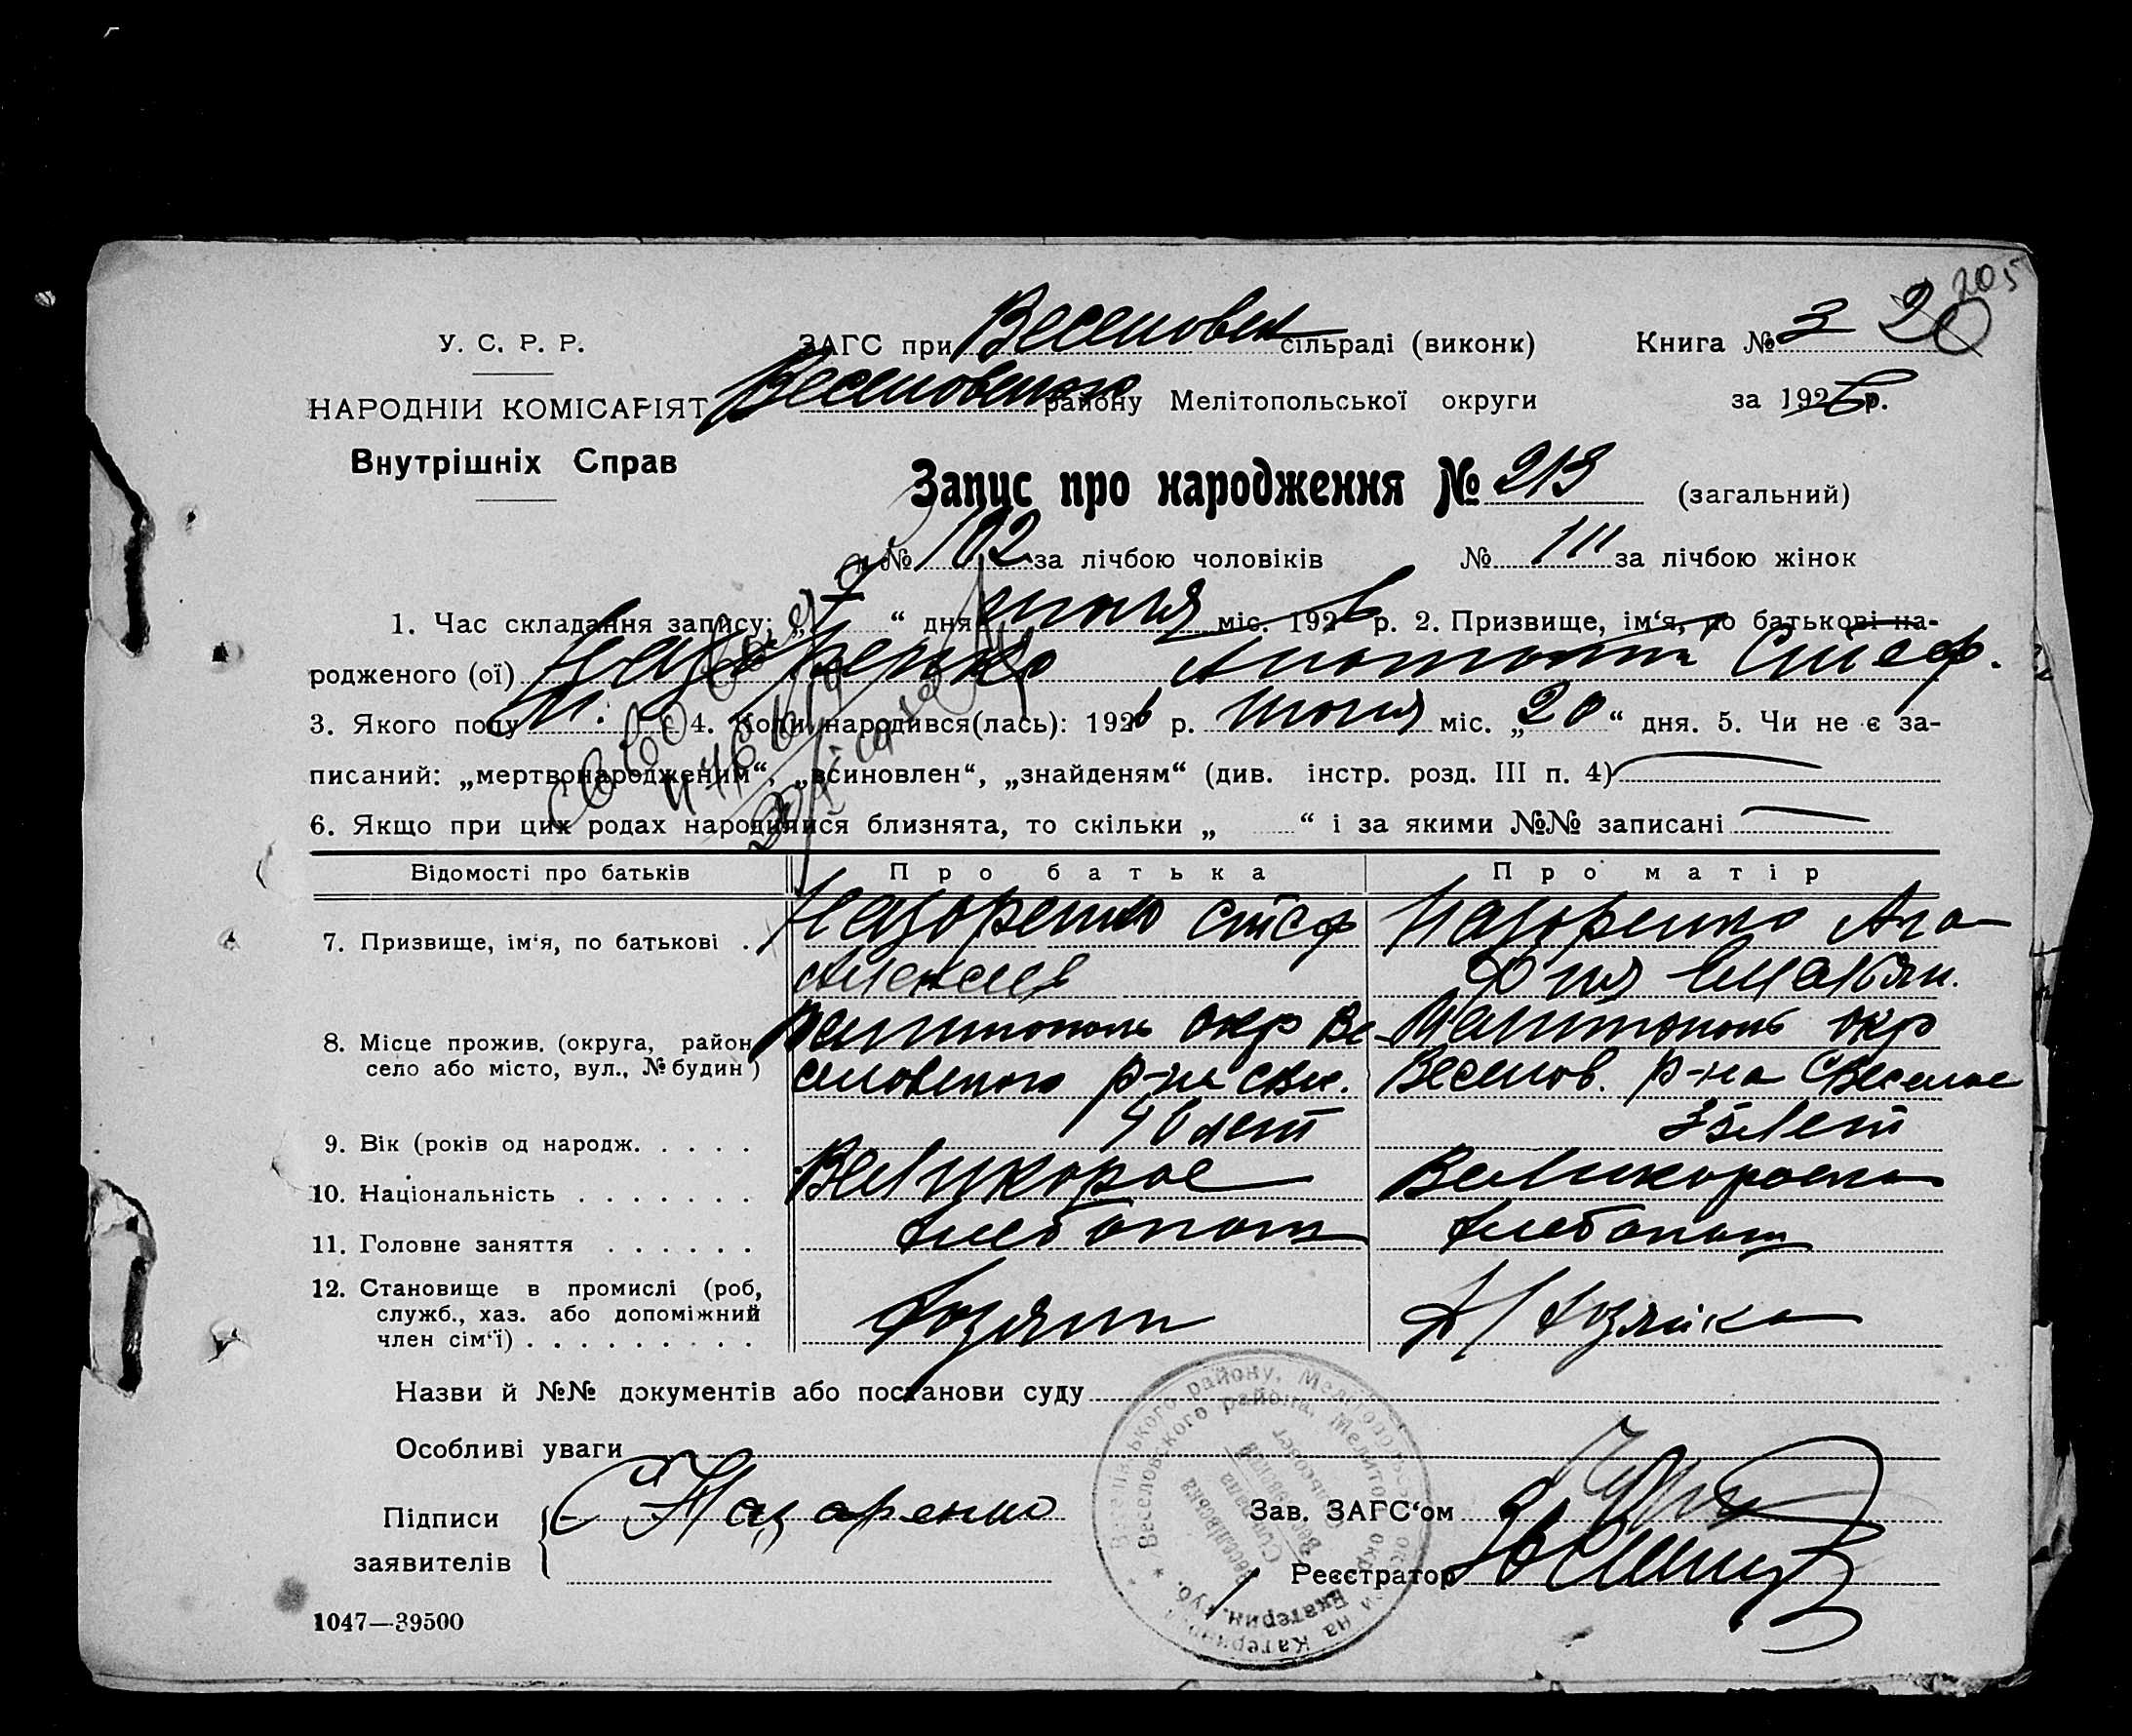 205
У. С. Р. Р. ЗАГС при Веселовск сільраді (виконк) Книга № 3 20
НАРОДНІЙ КОМІСАРІЯТ Веселовского району Мелітопольської округи за 1926 р.
Внутрішніх Справ
Запис про народження № 213 (загальний)
№ 102 за лічбою чоловіків № 111 за лічбою жінок
1. Час складання запису: „ “ дня міс. 1926 р. 2. Призвище, ім‘я, по батькові на-
родженого (ої) Назаренко Анатолий Стеф.
3. Якого полу М. 4. Коли народився(лась): 1926 р. июня міс. „20“ дня. 5. Чи не є за-
писаний: „мертвонародженим“, „всиновлен“, „знайденям“ (див. інстр. розд. III п. 4)
6. Якщо при цих родах народилися близнята, то скільки „ “ і за якими №№ записані
Відомості про батьків Про батька Про матір
7. Призвище, ім‘я, по батькові . Назаренко Стеф Назаренко Ага-
Алексеев фия Емельян.
8. Місце прожив. (округа, район, Мелитополь окр Ве- Мелитополь окр
село або місто, вул., № будин ) селовского р-на с Вес. Веселов. р-на с Веселое
9. Вік (років од народж. . . . . 40 лет лет
10. Національність . . . . . . . Великорос Великороска
11. Головне заняття . . . . . . хлебопаш хлебопаш
12. Становище в промислі (роб,
служб., хаз. або допоміжний
член сім‘ї) . . . . . . . . . Хозяин Д/Хозяйка
Назви й №№ документів або постанови суду
Особливі уваги
Підписи С Назаренко Зав. ЗАГС‘ом
заявителів Реєстратор
1047—39500